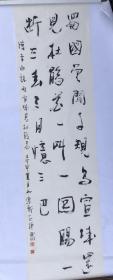 蜀國曾聞子規鳥宣城還
見杜鵑花一叫一回腸一
斷三春三月憶三巴
李白詩